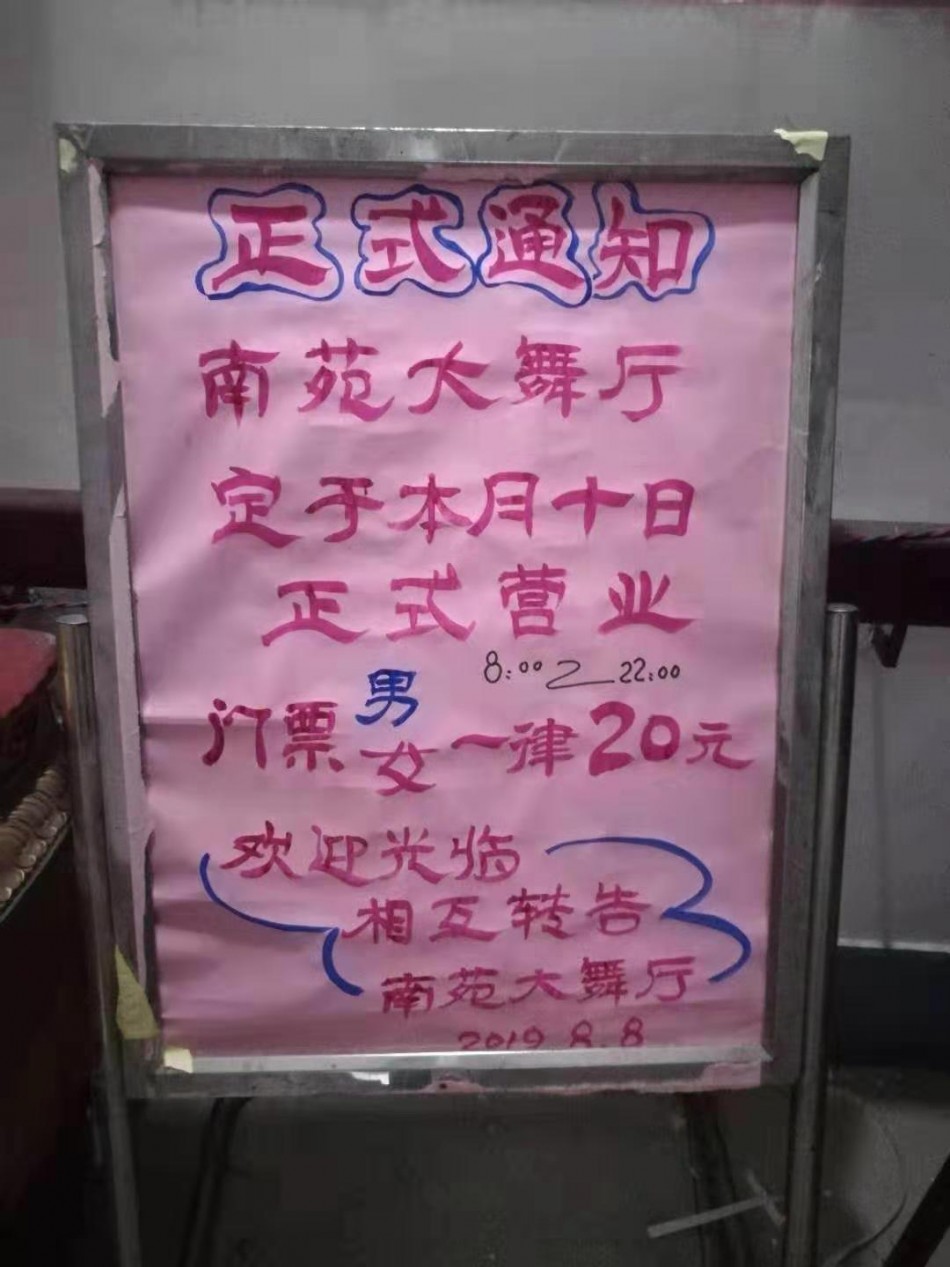 正式通知
南苑大舞厅
定于本月十日
正式营业
8:00～22:00
门票男女一律20元
欢迎光临
相互转告
南苑大舞厅
2019.8.8